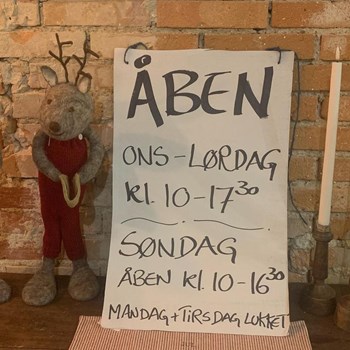 ÅBEN
ONS-LØRDAG
kl. 10-17³⁰
SØNDAG
ÅBEN kl. 10-16³⁰
MANDAG+TIRSDAG LUKKET